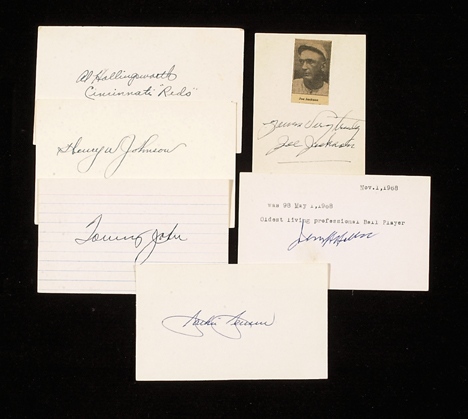 Al Hollingsworth
Cincinnati "Reds"
Joe Jackson
Yours Very truly
Joe Jackson
Henry W Johnson
Nov.1,1968
was 98 May 1,1968
Oldest living professional Ball Player
Tommy John
Jackie Jensen